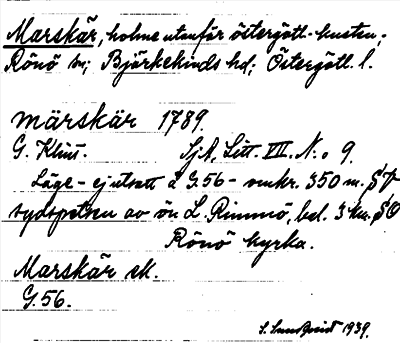 Marskär, holme utanför östergötl.-kusten,
Rönö sn; Björkekinds hd; Östergötl. l.
märskär 1789.
G. Klint. SjA, Litt. VIII. No. 9.
Läge - ej utsatt å G.56 - omkr. 350 m. S
sydspetsen av ön L. Rimmö, bel. 3 km. SO
Rönö kyrka.
Marskär ek.
G.56.
S. 1939.